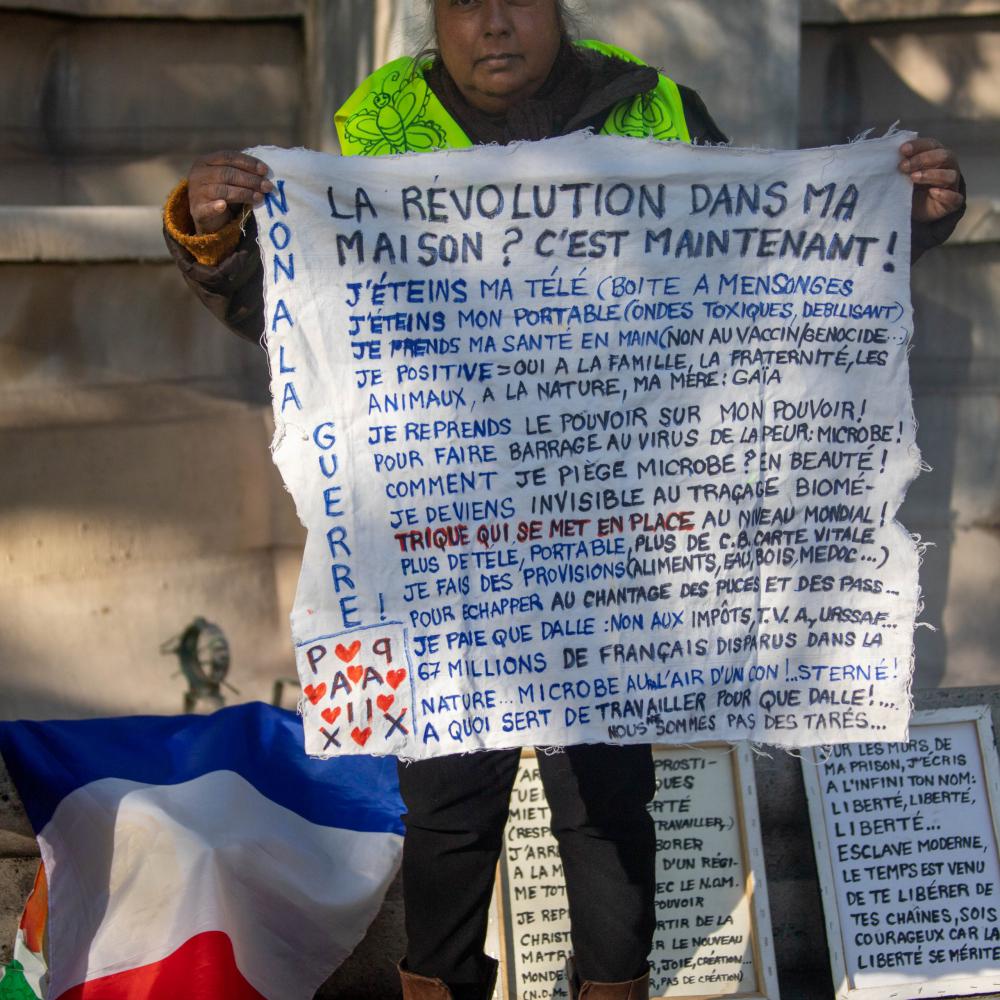 NON A LA
GUERRE !
LA RÉVOLUTION DANS MA
MAISON ? C'EST MAINTENANT !
J'ÉTEINS MA TÉLÉ (BOITE A MENSONGES
J'ÉTEINS MON PORTABLE (ONDES TOXIQUES, DEBILISANT)
JE PRENDS MA SANTÉ EN MAIN (NON AU VACCIN/GENOCIDE...)
JE POSITIVE = OUI A LA FAMILLE, LA FRATERNITÉ, LES
ANIMAUX, A LA NATURE, MA MÈRE : GAÏA
JE REPRENDS LE POUVOIR SUR MON POUVOIR !
POUR FAIRE BARRAGE AU VIRUS DE LA PEUR : MICROBE !
COMMENT JE PIÈGE MICROBE ? EN BEAUTÉ !
JE DEVIENS INVISIBLE AU TRAÇAGE BIOMÉ-
TRIQUE QUI SE MET EN PLACE AU NIVEAU MONDIAL !
PLUS DE TELE, PORTABLE, PLUS DE C.B. CARTE VITALE
JE FAIS DES PROVISIONS (ALIMENTS, EAU, BOIS, MEDOC...)
POUR ECHAPPER AU CHANTAGE DES PUCES ET DES PASS...
JE PAIE QUE DALLE : NON AUX IMPÔTS, T.V.A., URSSAF...
67 MILLIONS DE FRANÇAIS DISPARUS DANS LA
NATURE... MICROBE AURA L'AIR D'UN CON !..STERNÉ !
A QUOI SERT DE TRAVAILLER POUR QUE DALLE !....
NOUS NE SOMMES PAS DES TARÉS...
PAIX
PAIX
J'AR
TUE
MIET
(RESP
J'ARR
A LA M
ME TOT
JE REP
CHRIST
MATR
MONDE
(N.O.M
PROSTI-
QUES
ERTÉ
TRAVAILLER,)
BORER
D'UN RÉGI-
EC LE N.O.M.
POUVOIR
RTIR DE LA
R LE NOUVEAU
, JOIE, CREATION...
R, PAS DE CRÉATION)
SUR LES MURS DE
MA PRISON, J'ECRIS
A L'INFINI TON NOM :
LIBERTÉ, LIBERTÉ,
LIBERTÉ...
ESCLAVE MODERNE,
LE TEMPS EST VENU
DE TE LIBÉRER DE
TES CHAÎNES, SOIS
COURAGEUX CAR LA
LIBERTÉ SE MÉRITE